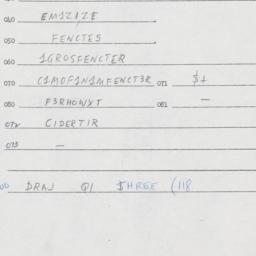 040 EM1Z1ZE
050 FENCTES
060 1GROSFENCTER
070 C1MOF1N1MFENCT3R 071 $+
080 F3RHOWXT 081 —
072 CIDERTIR
073 —
DRAJ Q1 $HREE (118